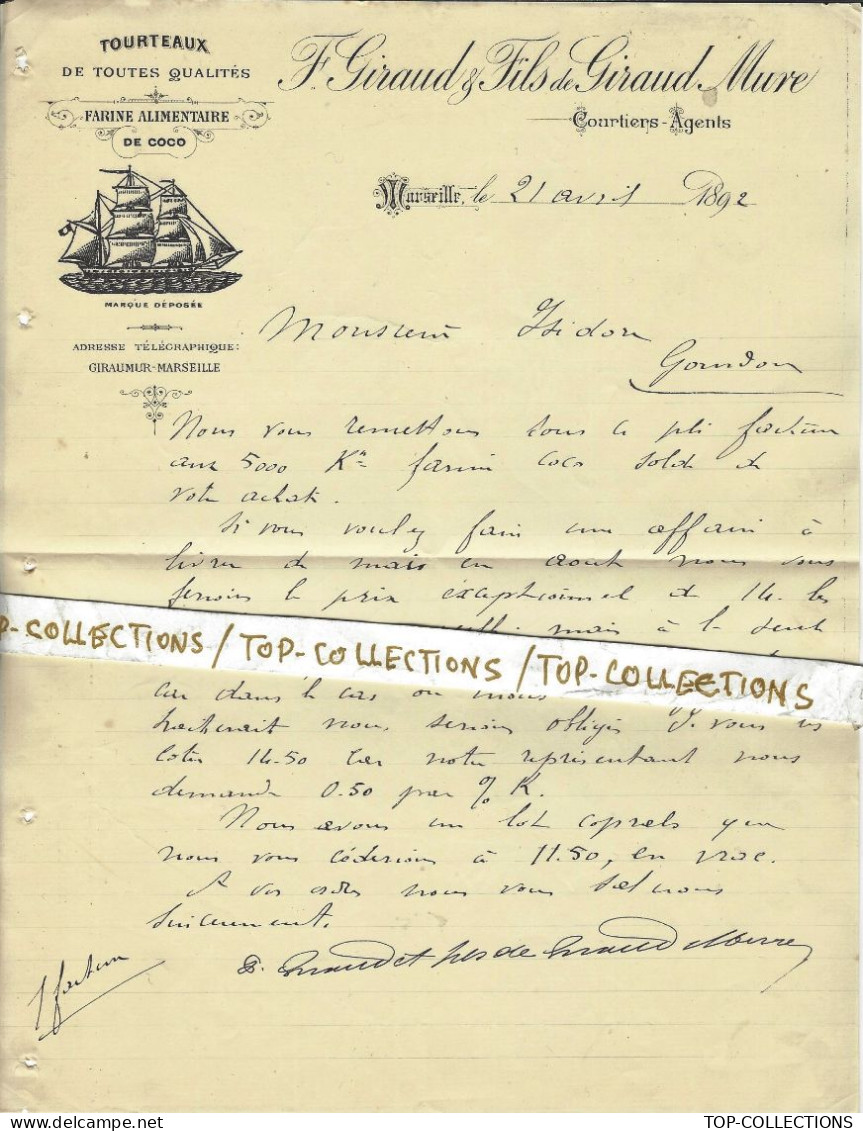 TOURTEAUX
DE TOUTES QUALITÉS
FARINE ALIMENTAIRE
DE COCO
MARQUE DÉPOSÉE
ADRESSE TÉLÉGRAPHIQUE:
GIRAUMUR-MARSEILLE
F. Giraud & Fils de Giraud Mure
Courtiers-Agents
Marseille, le 21 avril 1892
Monsieur Isidore
Gourdon
Nous vous remettons sous ce pli facture
aux 5000 Ks farine coco solde de
votre achat.
Si vous voulez faire une affaire à
livrer de mais en aout nous vous
ferions le prix exceptionnel de 14. les
mais à la seule
P-COLLECTIONS / TOP-COLLECTIONS / TOP-COLLECTIONS
car dans le cas ou
nous serions obligés
coter 14.50 car notre représentant nous
demande 0.50 par % K.
Nous avons un lot coprahs que
nous vous céderions à 11.50, en vrac.
A vos ordres nous vous saluons
sincèrement.
F. Giraud et fils de Giraud Mure
1 facture
TOP-COLLECTIONS